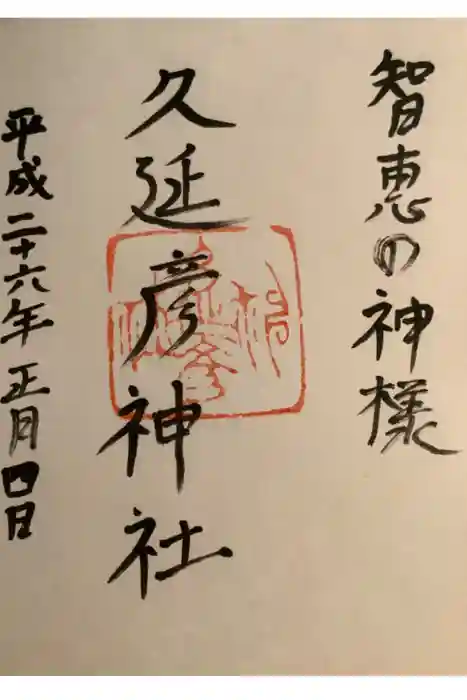 智恵の神様
久延彦神社
平成二十六年正月四日